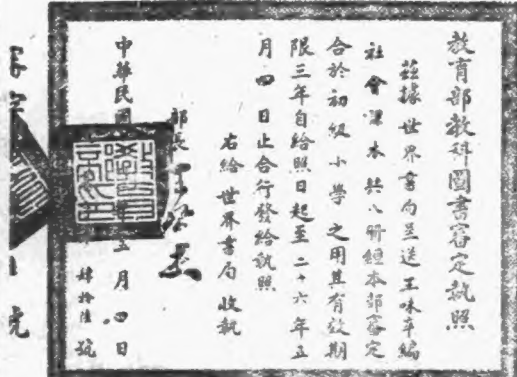 教育部教科圖書審定執照
茲據世界書局呈送王味辛編
社會課本共八冊經本部審定
合於初級小學之用其有效期
限三年自給照日起至二十六年五
月四日止合行發給執照
右給世界書局收執
部長
中華民國 年五月四日
肆拾陸號
號